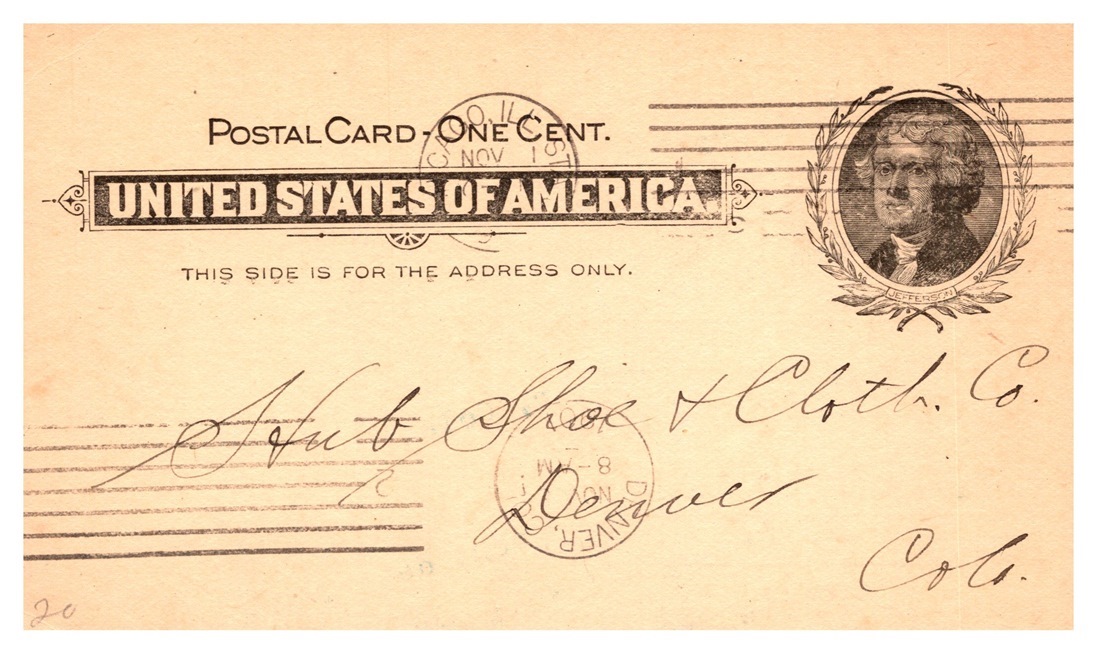 POSTAL CARD - ONE CENT.
UNITED STATES OF AMERICA.
THIS SIDE IS FOR THE ADDRESS ONLY.
CAGO, ILL. ST
NOV 1
JEFFERSON
Hub Shoe & Cloth. Co.
Denver
Colo.
DENVER, COL
NOV
8-AM
20